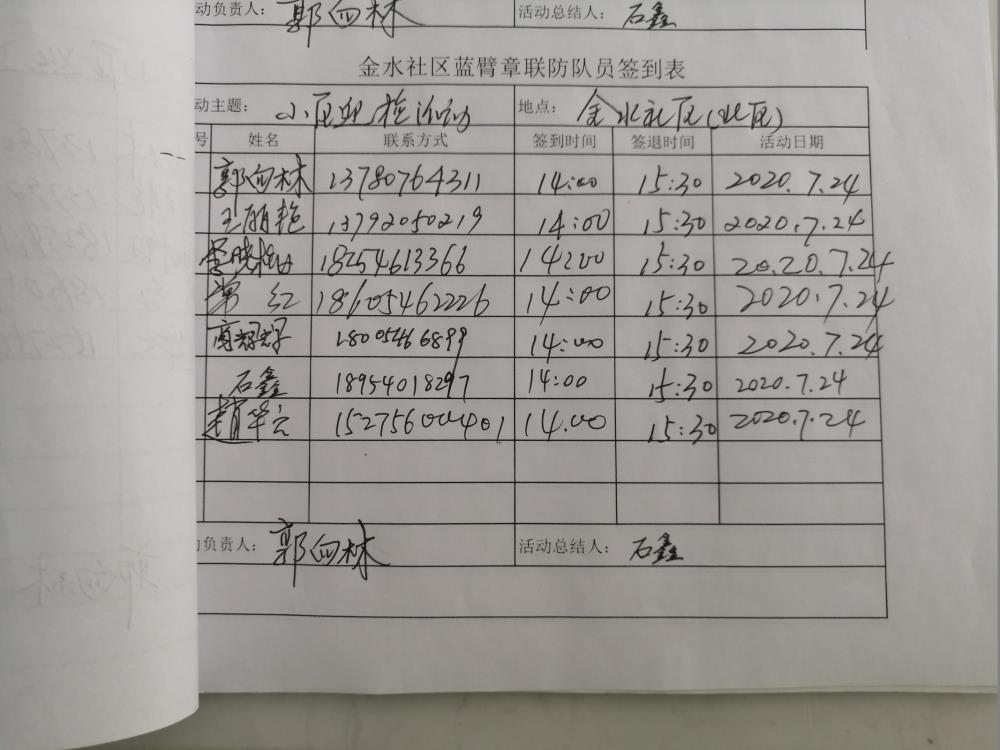 动负责人： 郭向林 活动总结人： 石鑫
金水社区蓝臂章联防队员签到表
动主题： 小区 活动 地点： 金水社区(北区)
号 姓名 联系方式 签到时间 签退时间 活动日期
郭向林 13780764311 14:00 15:30 2020.7.24
王丽艳 13792050219 14:00 15:30 2020.7.24
李晓 18254613366 14:00 15:30 2020.7.24
常红 18605462226 14:00 15:30 2020.7.24
高 18005466899 14:00 15:30 2020.7.24
石鑫 18954018297 14:00 15:30 2020.7.24
赵华云 15275600401 14.00 15:30 2020.7.24
负责人： 郭向林 活动总结人： 石鑫